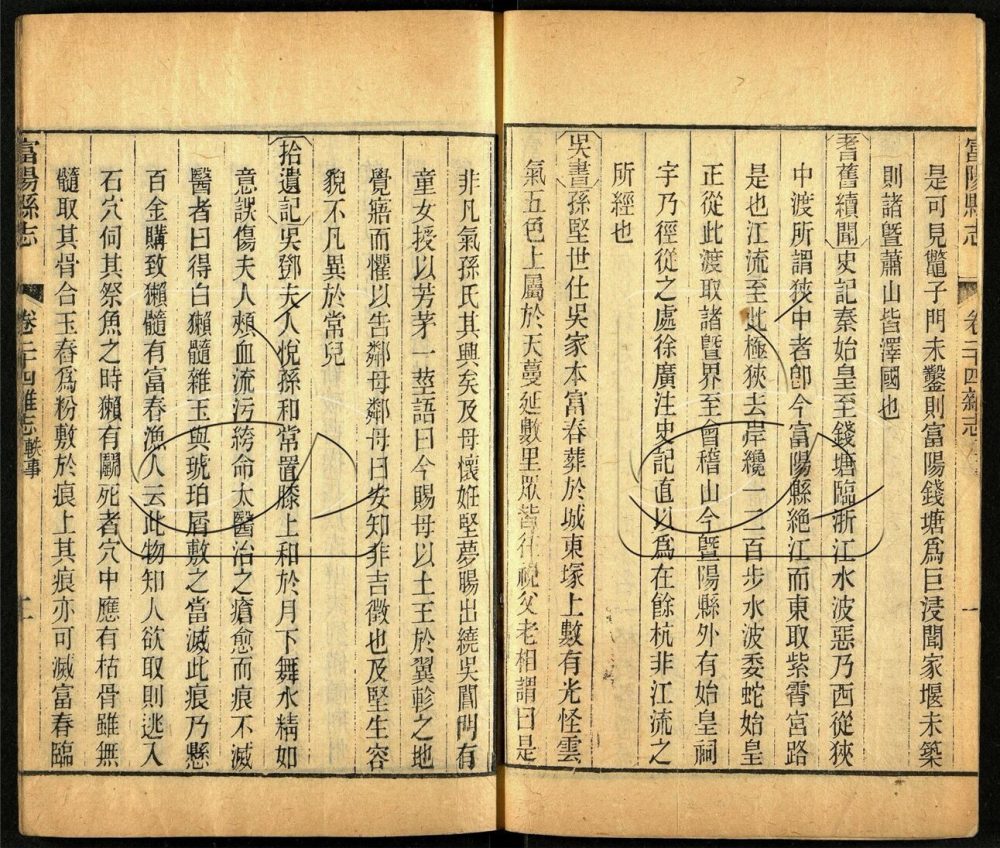 富陽縣志
卷二十四雜志
一
是可見鼈子門未鑿則富陽錢塘爲巨浸聞家堰未築
則諸暨蕭山皆澤國也
耆舊續聞史記秦始皇至錢塘臨浙江水波惡乃西從狹
中渡所謂狹中者卽今富陽縣絶江而東取紫霄宮路
是也江流至此極狹去岸纔一二百步水波委蛇始皇
正從此渡取諸暨界至會稽山今暨陽縣外有始皇祠
字乃徑從之處徐廣注史記直以爲在餘杭非江流之
所經也
吳書孫堅世仕吳家本富春葬於城東塚上數有光怪雲
氣五色上屬於天蔓延數里眾皆往視父老相謂曰是
非凡氣孫氏其興矣及母懷姙堅夢腸出繞吳閶門有
童女授以芳茅一莖語曰今賜母以土王於翼軫之地
覺寤而懼以告鄰母鄰母曰安知非吉徵也及堅生容
貌不凡異於常兒
拾遺記吳鄧夫人悅孫和常置膝上和於月下舞水精如
意誤傷夫人頰血流污絝命太醫治之瘡愈而痕不滅
醫者曰得白獺髓雜玉與琥珀屑敷之當滅此痕乃懸
百金購致獺髓有富春漁人云此物知人欲取則逃入
石穴伺其祭魚之時獺有鬭死者穴中應有枯骨雖無
髓取其骨合玉舂爲粉敷於痕上其痕亦可滅富春臨
富陽縣志
卷二十四雜志軼事